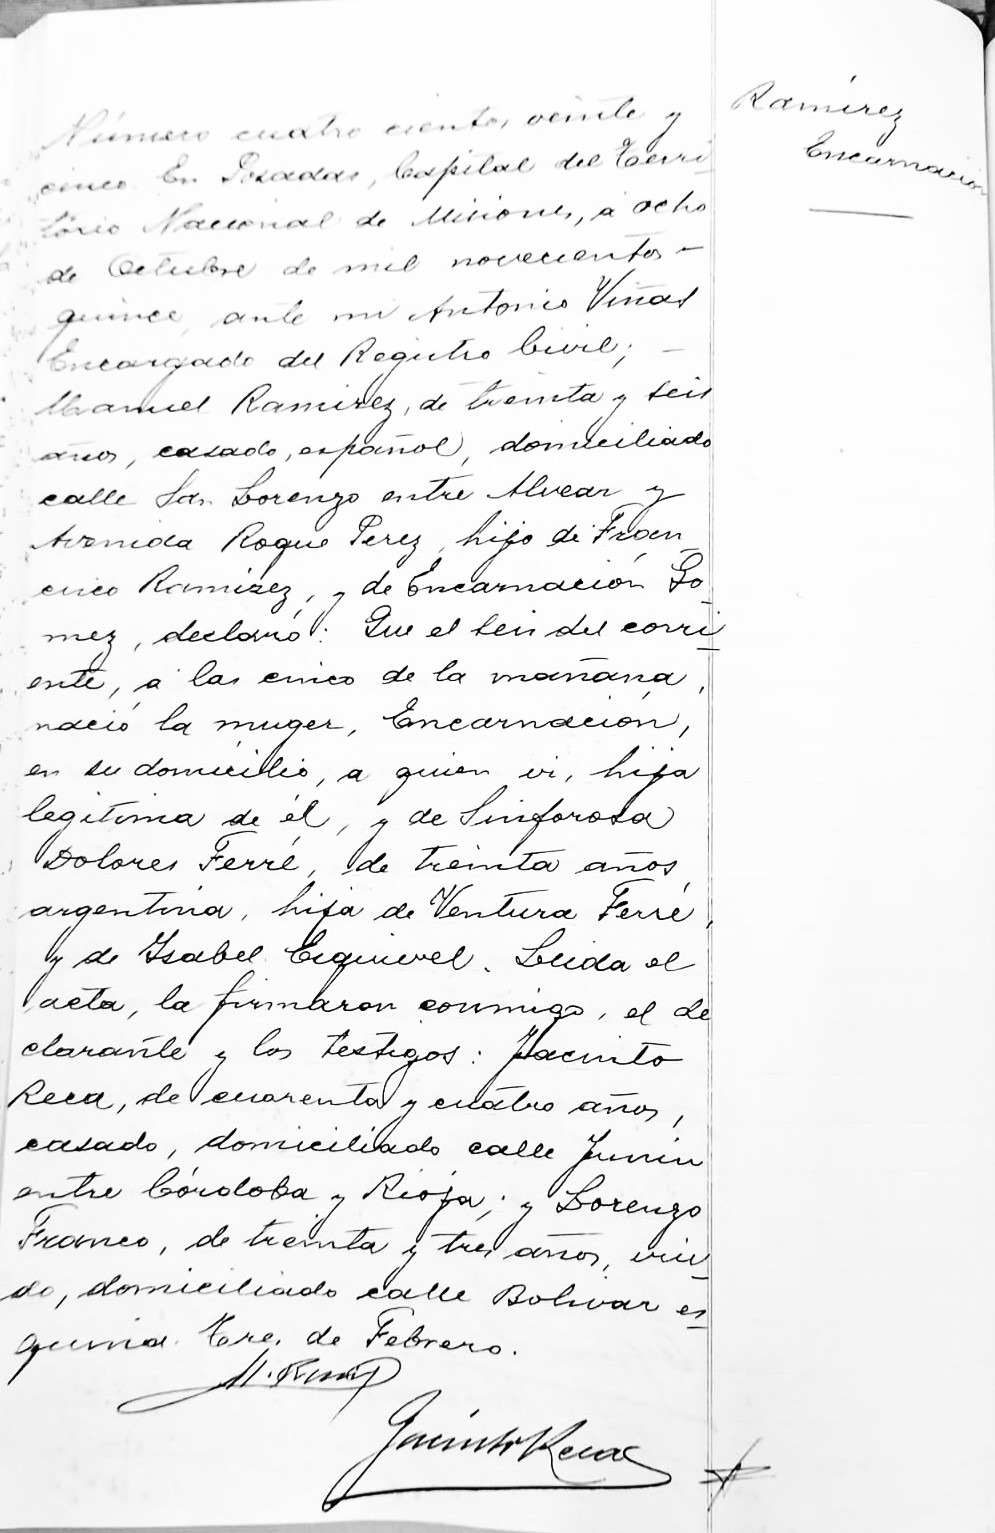 Ramírez
Encarnación
Número cuatro cientos veinte y
cinco. En Posadas, Capital del Terri
torio Nacional de Misiones, á ocho
de Octubre de mil novecientos -
quince, ante mi Antonio Viñas
Encargado del Registro Civil; -
Manuel Ramírez, de treinta y seis
años, casado, español, domiciliado
calle San Lorenzo entre Alvear y
Avenida Roque Perez, hijo de Fran
cisco Ramírez, y de Encarnación Go
mez, declaró: Que el seis del corri
ente, á las cinco de la mañana,
nació la muger, Encarnación,
en su domicilio, a quien vi, hija
legítima de él, y de Sinforosa
Dolores Ferré, de treinta años,
argentina, hija de Ventura Ferré,
y de Isabel Esquivel. Leida el
acta, la firmaron conmigo, el de
clarante y los testigos: Jacinto
Reca, de cuarenta y cuatro años,
casado, domiciliado calle Junín
entre Córdoba y Rioja; y Lorenzo
Franco, de treinta y tres años, viu
do, domiciliado calle Bolivar es
quina Tres de Febrero.
Jacinto Reca